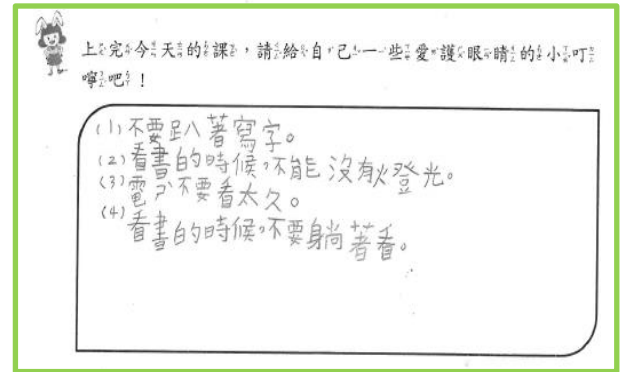 上完今天的課，請給自己一些愛護眼睛的小叮
嚀吧！
(1)不要趴著寫字。
(2)看書的時候，不能沒有火登光。
(3)電ㄕˋ不要看太久。
(4)看書的時候，不要躺著看。